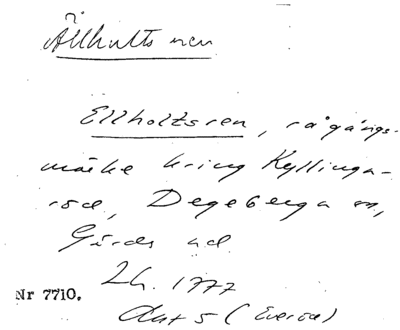 Ällhults ren
Ellholtsren, rågångs-
märke kring Kyllinga-
röd, Degeberga sn,
Gärds hd
Lh. 1777
Akt 5 (Everöd)
Nr 7710.